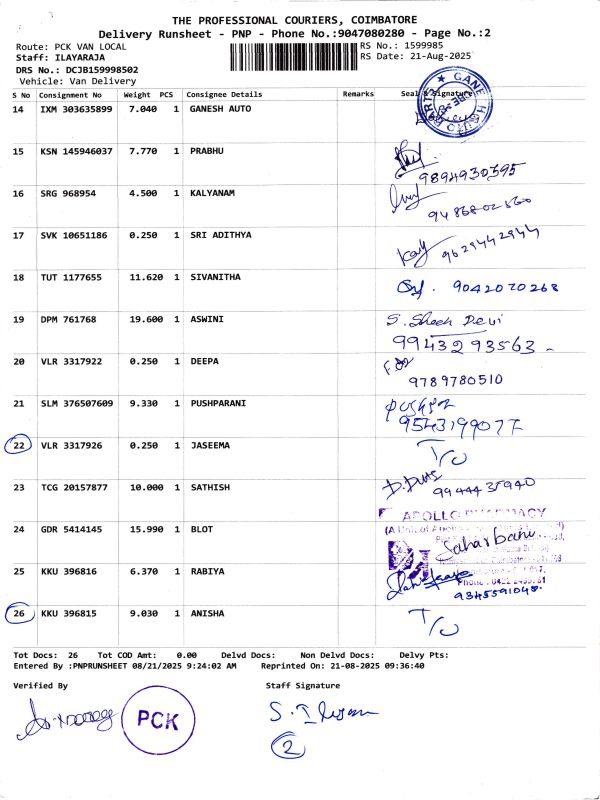 THE PROFESSIONAL COURIERS, COIMBATORE
Delivery Runsheet - PNP - Phone No.:9047080280 - Page No.:2
Route: PCK VAN LOCAL RS No.: 1599985
Staff: ILAYARAJA RS Date: 21-Aug-2025
DRS No.: DCJB159998502
Vehicle: Van Delivery
S No Consignment No Weight PCS Consignee Details Remarks Seal & Signature
14 IXM 303635899 7.040 1 GANESH AUTO
15 KSN 145946037 7.770 1 PRABHU
9894930595
16 SRG 968954 4.500 1 KALYANAM
17 SVK 10651186 0.250 1 SRI ADITHYA
9629442944
18 TUT 1177655 11.620 1 SIVANITHA
9042070268
19 DPM 761768 19.600 1 ASWINI
99432 93563
20 VLR 3317922 0.250 1 DEEPA
9789780510
21 SLM 376507609 9.330 1 PUSHPARANI
9543199077
22 VLR 3317926 0.250 1 JASEEMA
T/O
23 TCG 20157877 10.000 1 SATHISH
9944435940
24 GDR 5414145 15.990 1 BLOT
APOLLO PHARMACY
Saharbanu
25 KKU 396816 6.370 1 RABIYA
26 KKU 396815 9.030 1 ANISHA
T/O
Tot Docs: 26 Tot COD Amt: 0.00 Delvd Docs: Non Delvd Docs: Delvy Pts:
Entered By :PNPRUNSHEET 08/21/2025 9:24:02 AM Reprinted On: 21-08-2025 09:36:40
Verified By Staff Signature
PCK
2